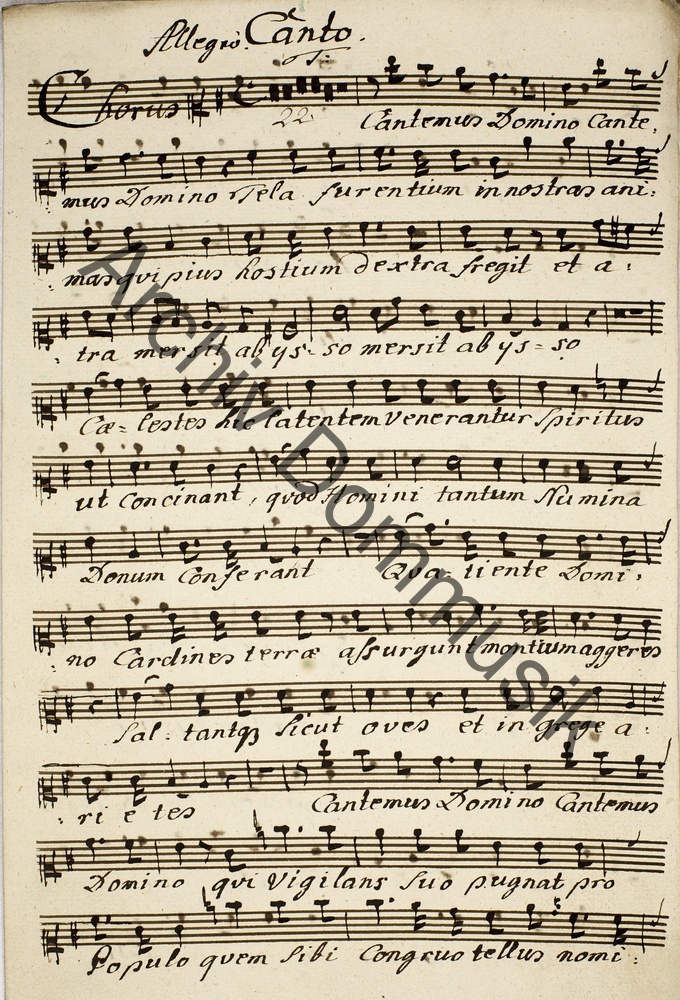 Allegro. Canto.
T:
Chorus
22.
Cantemus Domino Cante,
mus Domino Tela furentium in nostras ani:
mas qui pius hostium dextra fregit et a:
: tra mersit ab ys-so mersit ab ys=so
Cæ-lestes hic latentem Venerantur Spiritus
ut Concinant, quod Homini tantum Numina
Donum Conferant Qua-tiente Domi,
no Cardines terræ assurgunt montium aggeres
Sal-tantq sicut oves et in grege a:
: ri e tes Cantemus Domino Cantemus
Domino qui Vigilans suo pugnat pro
Populo quem sibi Congruo tellus nomi:
Archiv Dommusik